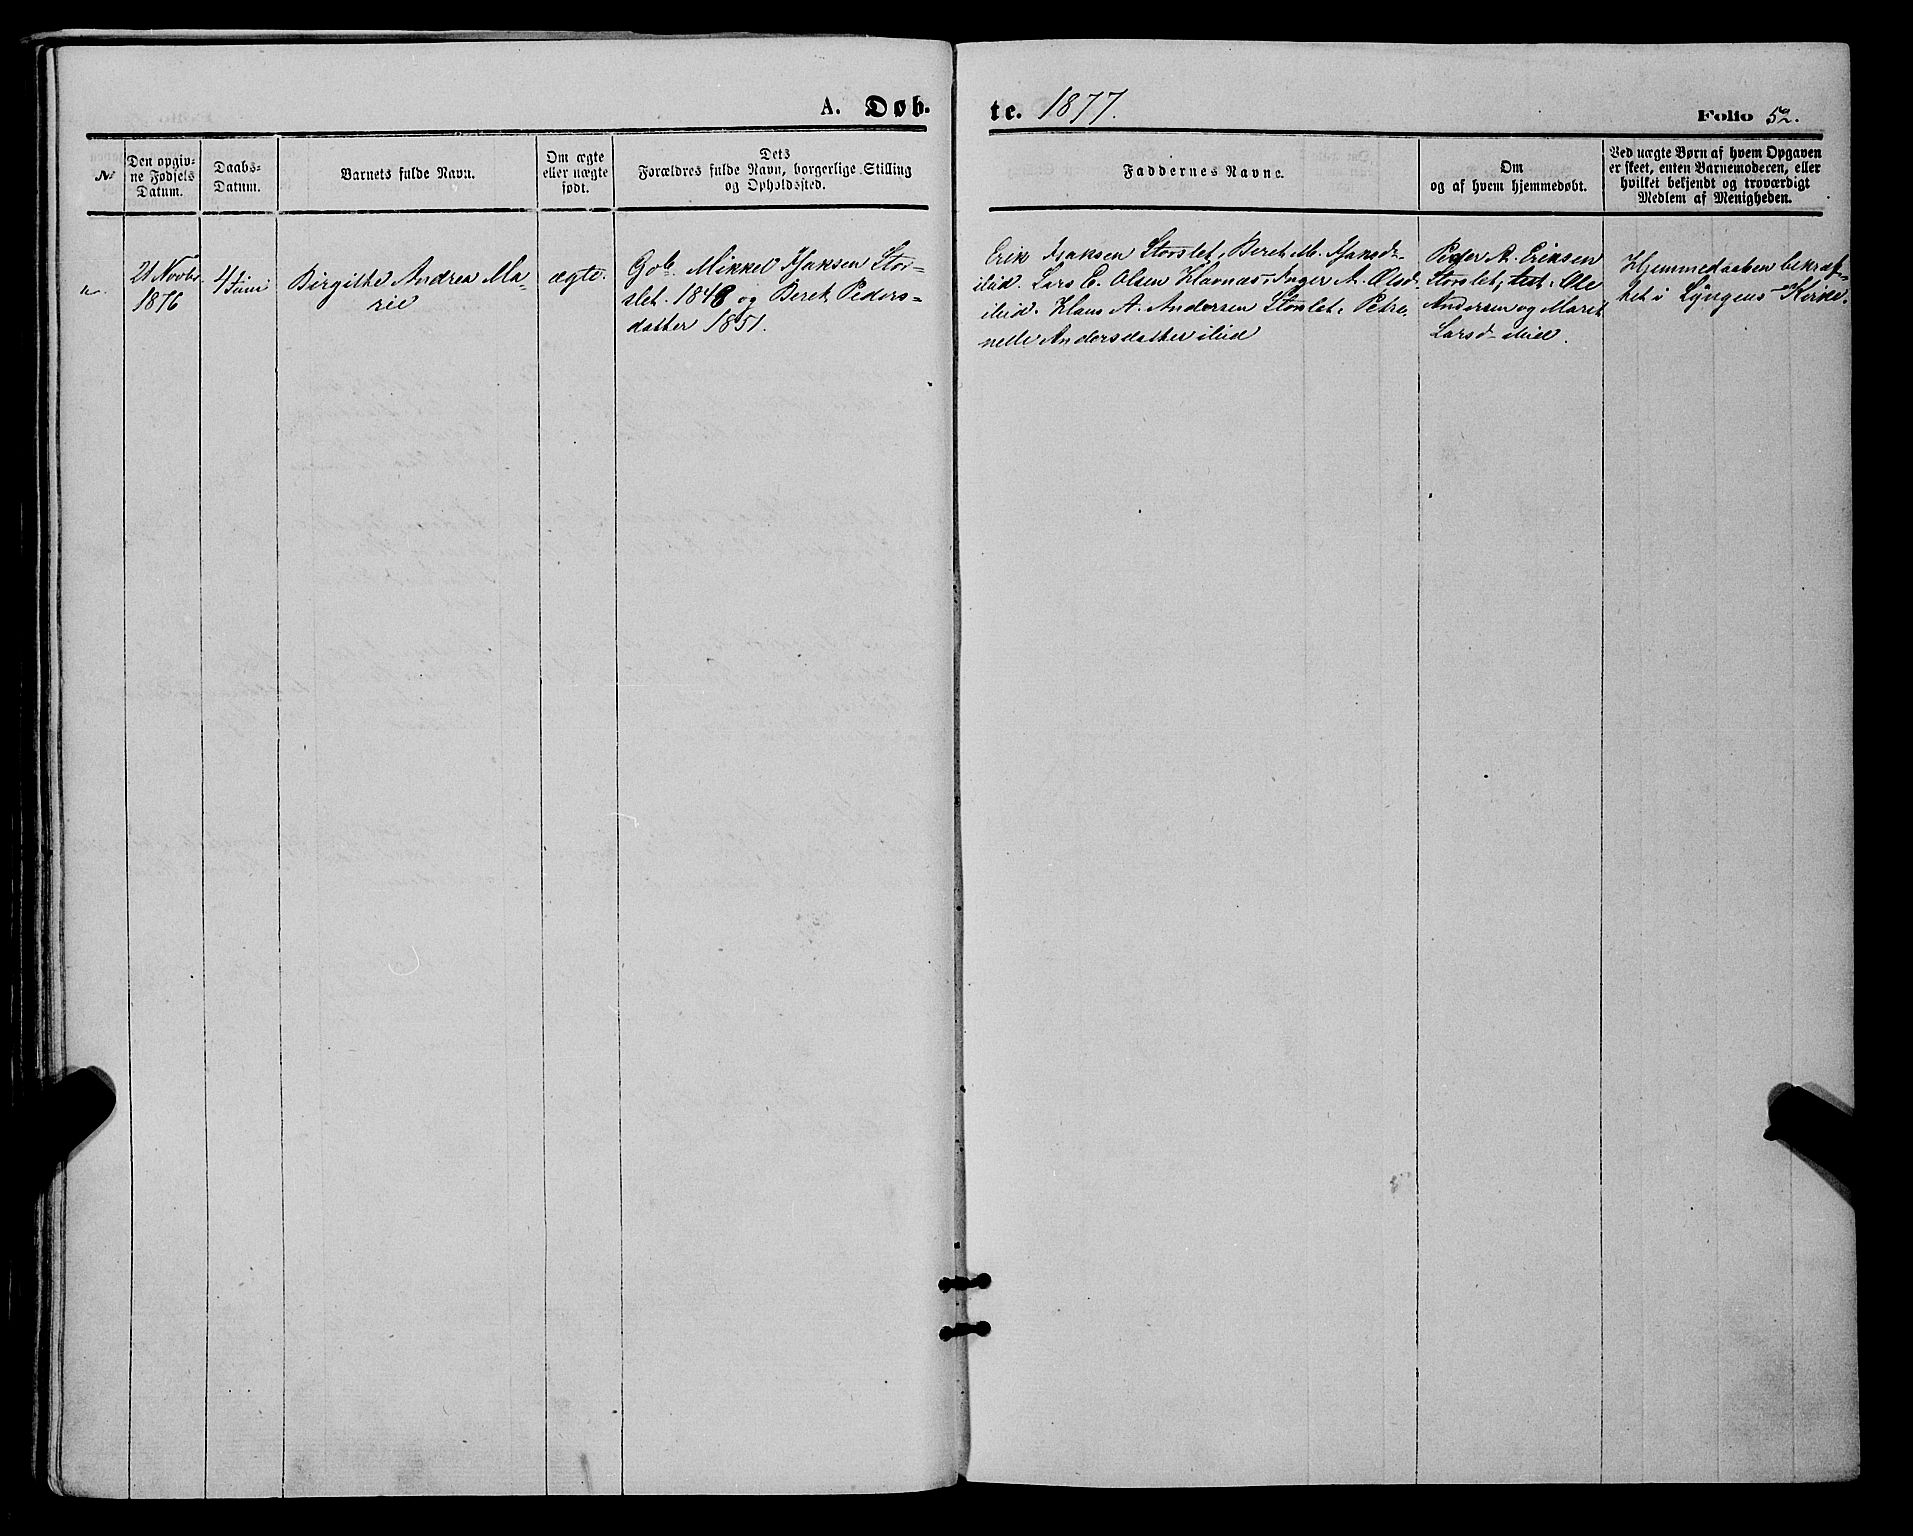 A. Døb-
te. 1877.
Folio 52.
№
Den opgiv-
ne Fødsels
Datum.
Daabs-
Datum.
Barnets fulde Navn.
Om ægte
eller uægte
født.
Dets
Forældres fulde Navn, borgerlige Stilling
og Opholdssted.
Faddernes Navne.
Om
og af hvem hjemmedøbt.
Ved uægte Børn af hvem Opgaven
er skeet, enten Barnemoderen, eller
hvilket bekjendt og troværdigt
Medlem af Menigheden.
21 Novbr
1876
4 Juni
Birgithe Andrea Ma-
rie
ægte.
Gb. Mikkel Isaksen Stor-
slet. 1848 og Beret Peders-
datter 1851.
Erik Isaksen Storslet, Beret M. Isaksd-
ibid. Lars E. Olsen Havnæs, Inger A. Olsd.
ibid. Hans A. Andersen Storslet, Petre-
nelle Andersdatter ibid
Peder A. Eriksen
Storslet, test. Ole
Andersen og Maret
Larsd- ibid.
Hjemmedaaben bekræf-
tet i Lyngens Kirke.